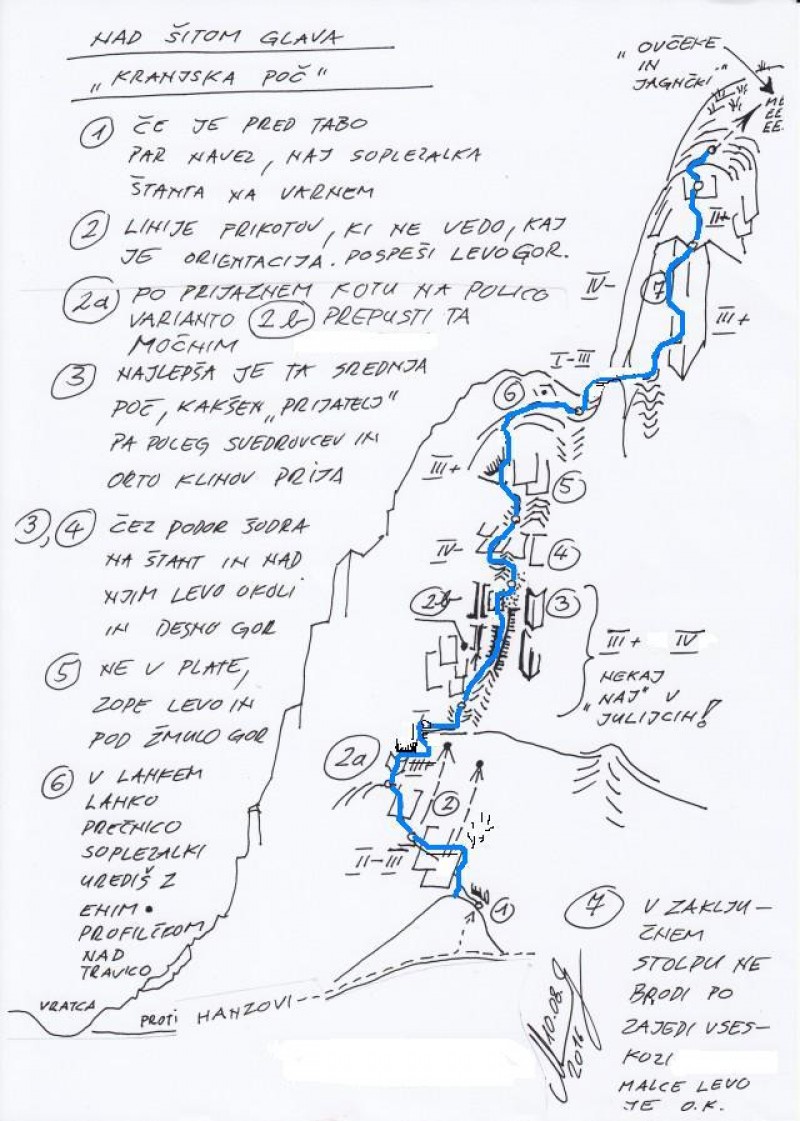 NAD ŠITOM GLAVA
"KRANJSKA POČ"
1 ČE JE PRED TABO
PAR NAVEZ, NAJ SOPLEZALKA
ŠTANTA NA VARNEM
2 LINIJE PRIKOTOV, KI NE VEDO, KAJ
JE ORIENTACIJA. POSPEŠI LEVO GOR.
2a PO PRIJAZNEM KOTU NA POLICO
VARIANTO 2b PREPUSTI TA
MOČNIM
3 NAJLEPŠA JE TA SREDNJA
POČ, KAKŠEN "PRIJATELJ"
PA POLEG SVEDROVCEV IN
ORTO KLINOV PRIJA
3,4 ČEZ PODOR ŠODRA
NA ŠTANT IN NAD
NJIM LEVO OKOLI
IN DESNO GOR
5 NE V PLATE,
ZOPE LEVO IN
POD ŽMULO GOR
6 V LAHKEM
LAHKO
PREČNICO
SOPLEZALKI
UREDIŠ Z
ENIM •
PROFILČKOM
NAD
TRAVICO
"OVČEKE
IN
JAGNČKI"
ME
EE
EE.
III+
IV-
7
III+
I-III
6
III+
5
IV-
4
2b
3
III+ IV
NEKAJ
"NAJ" V
JULIJCIH!
I
2a
III+
2
II-III
1
VRATCA
PROTI HANZOVI
10.08.
2016
7 V ZAKLJU-
ČNEM
STOLPU NE
BRODI PO
ZAJEDI VSES-
KOZI
MALCE LEVO
JE O.K.